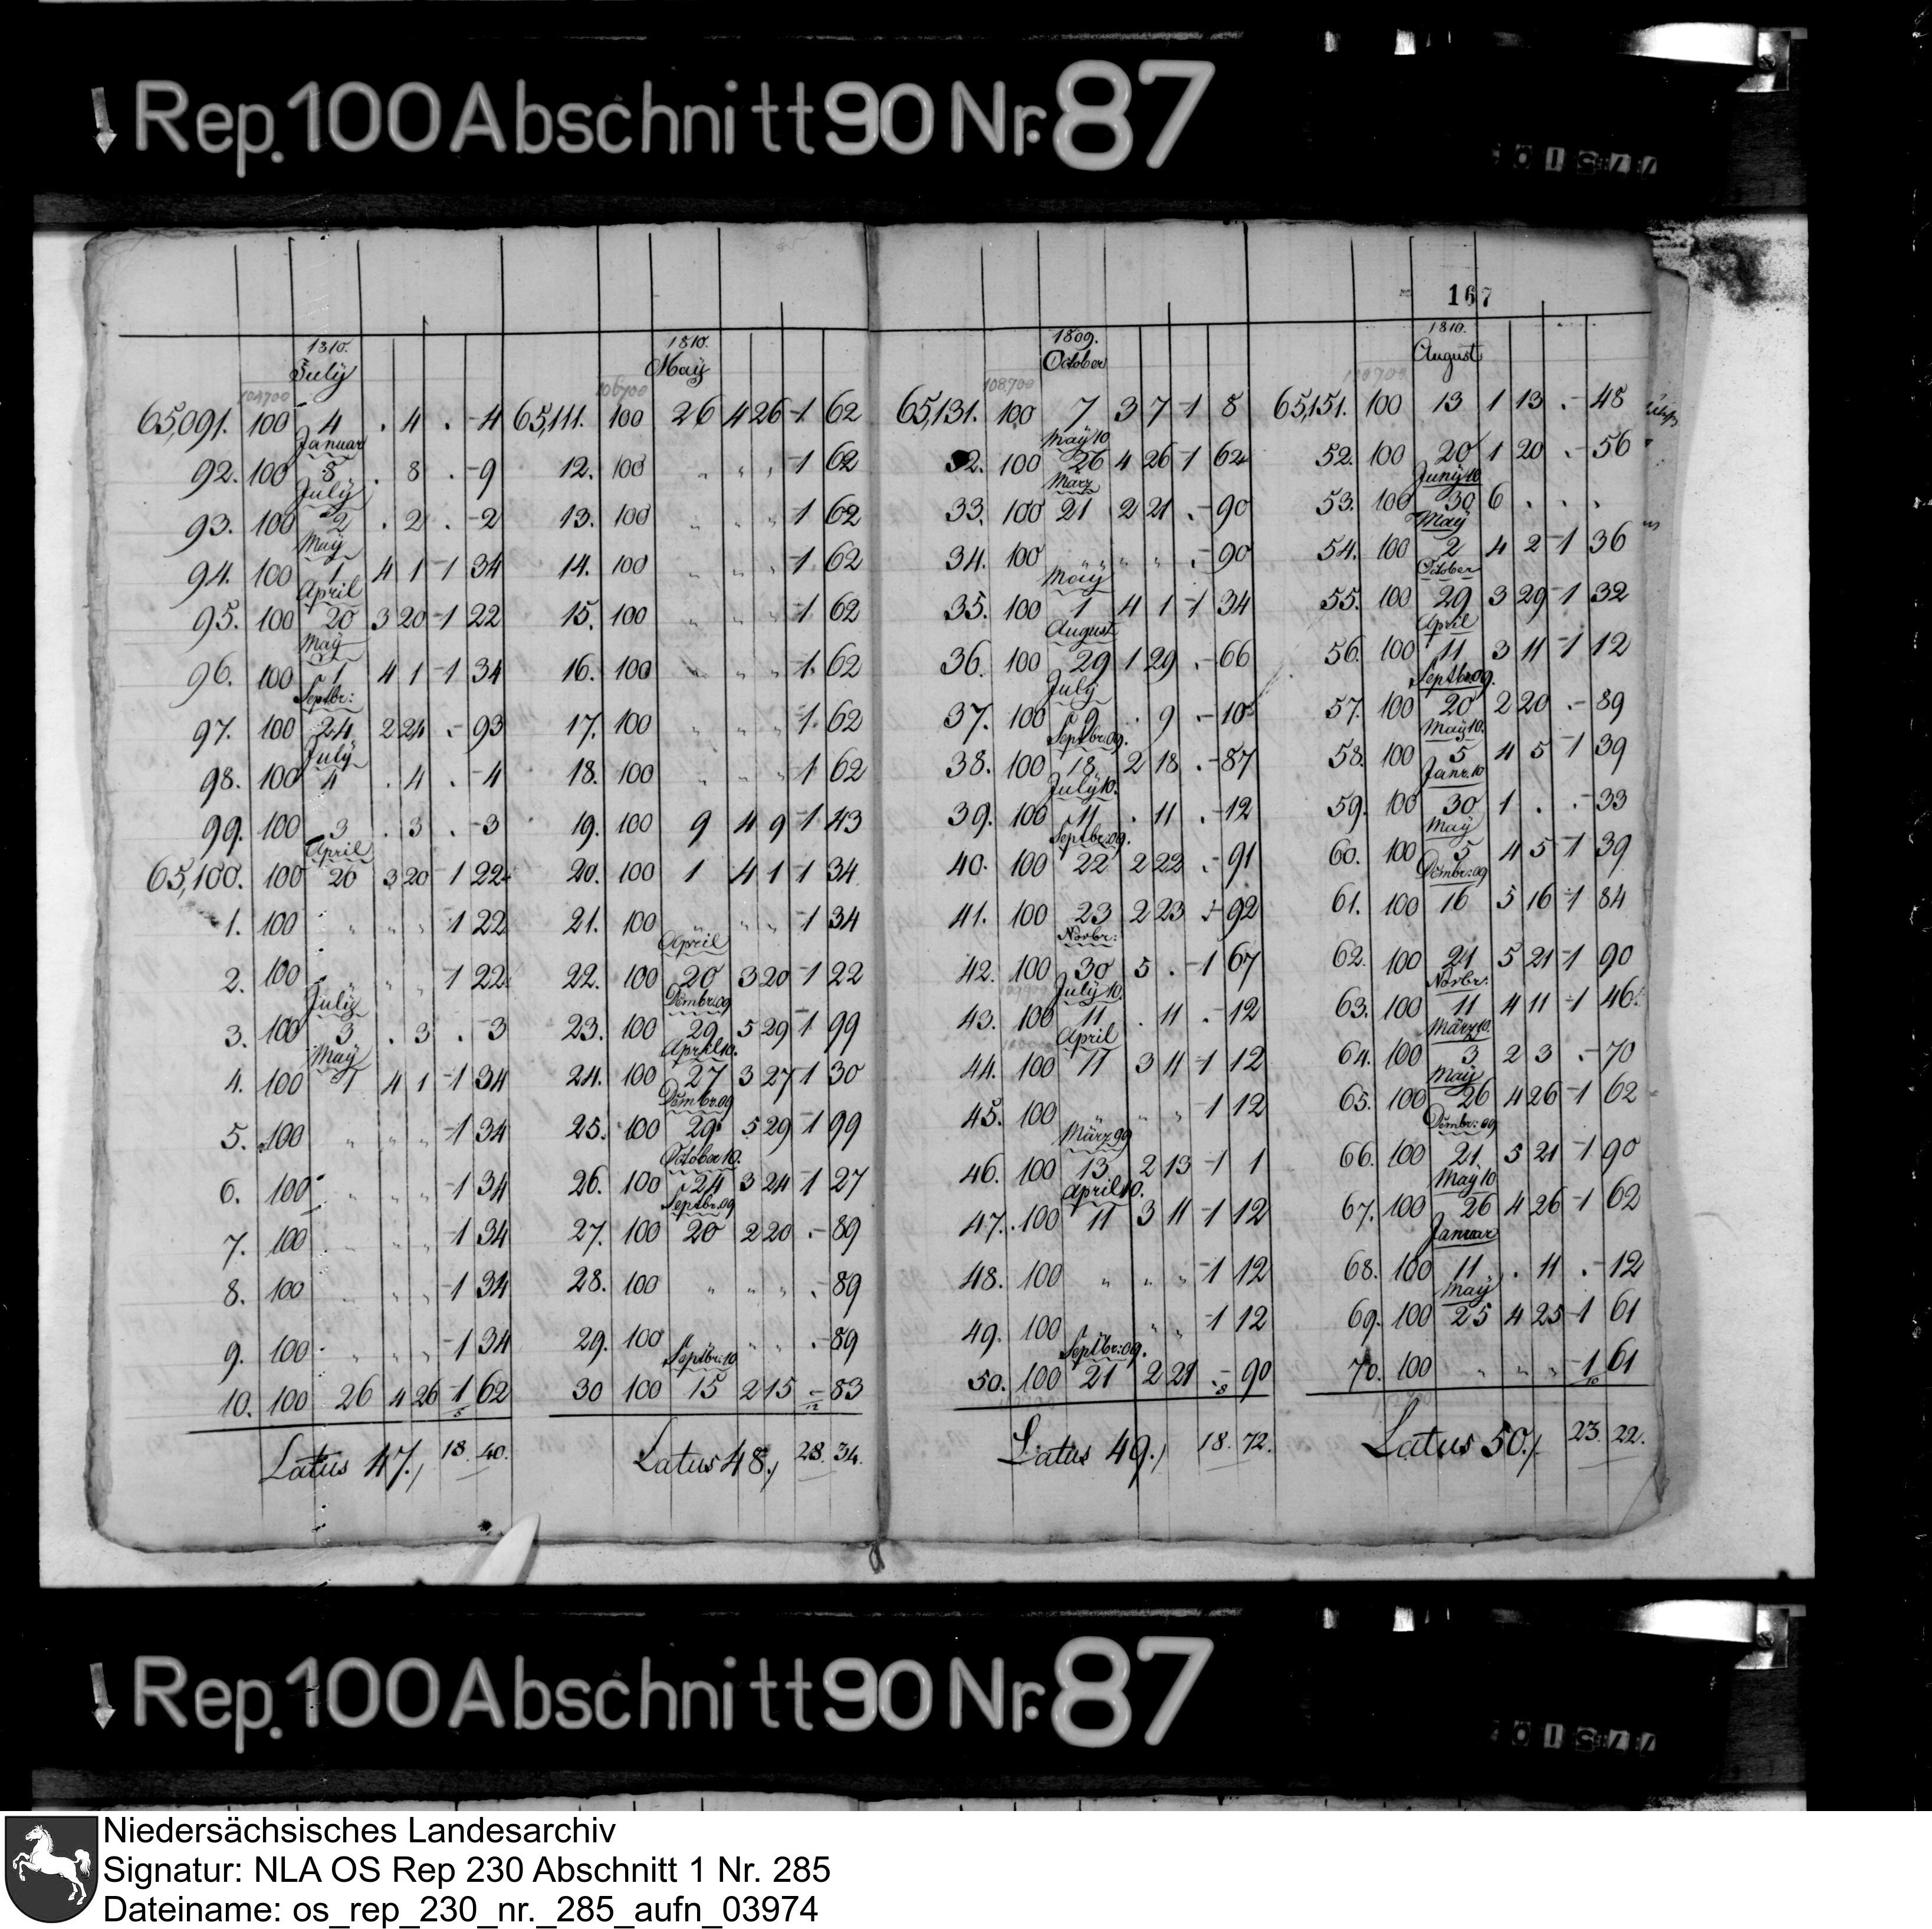 Rep. 100 Abschnitt 90 Nr. 87
167
1810.
July
104700
65,091. 100 4 . 4 . - 4
Januar
92. 100 8 . 8 . - 9
July
93. 100 2 . 2 . - 2
Maÿ
94. 100 1 4 1 - 1 34
April
95. 100 20 3 20 - 1 22
Maÿ
96. 100 1 4 1 - 1 34
Septbr:
97. 100 24 2 24 . - 93
July
98. 100 4 . 4 . - 4
99. 100 3 . 3 . - 3
April
65,100. 100 20 3 20 1 22
1. 100 " " " - 1 22
2. 100 " " " 1 22
July
3. 100 3 . 3 . - 3
Maÿ
4. 100 1 4 1 - 1 34
5. 100 " " " - 1 34
6. 100 " " " - 1 34
7. 100 " " " - 1 34
8. 100 " " " - 1 34
9. 100 " " " - 1 34
10. 100 26 4 26 - 1 62
5
Latus 47./ 18. 40.
1810.
Maÿ
106700
65,111. 100 26 4 26 - 1 62
12. 100 " " " - 1 62
13. 100 " " " - 1 62
14. 100 " " " - 1 62
15. 100 " " " - 1 62
16. 100 " " " - 1 62
17. 100 " " " - 1 62
18. 100 " " " - 1 62
19. 100 9 4 9 - 1 43
20. 100 1 4 1 - 1 34
21. 100 " " " - 1 34
April
22. 100 20 3 20 - 1 22
Dcmbr:09
23. 100 29 5 29 - 1 99
April 10.
24. 100 27 3 27 - 1 30
Dcmbr.09
25. 100 29 5 29 - 1 99
October 10.
26. 100 24 3 24 - 1 27
Septbr.09
27. 100 20 2 20 . - 89
28. 100 " " " . - 89
29. 100 " " " . - 89
Septbr:10
30 100 15 2 15 - 83
12
Latus 48./ 28. 34.
1809.
October
108,700
65,131. 100 7 3 7 - 1 8
Maÿ 10
32. 100 26 4 26 - 1 62
März
33. 100 21 2 21 . - 90
34. 100 " " " . - 90
Maÿ
35. 100 1 4 1 - 1 34
August
36. 100 29 1 29 . - 66
July
37. 100 9 . 9 . - 10
Septbr.09.
38. 100 18 2 18 . - 87
July 10.
39. 100 11 . 11 . - 12
Septbr:09.
40. 100 22 2 22 . - 91
41. 100 23 2 23 . - 92
Novbr:
42. 100 30 5 . - 1 67
July 10.
43. 100 11 . 11 . - 12
April
44. 100 11 3 11 - 1 12
45. 100 " " " - 1 12
März 09
46. 100 13 2 13 - 1 1
April 10.
47. 100 11 3 11 - 1 12
48. 100 " " " - 1 12
49. 100 " " " - 1 12
Septbr:09.
50. 100 21 2 21 . - 90
8
Latus 49./ 18. 72.
1810.
August
65,151. 100 13 1 13 . - 48
52. 100 20 1 20 . - 56
Junÿ 10
53. 100 30 6 . . .
Maÿ
54. 100 2 4 2 - 1 36
October
55. 100 29 3 29 - 1 32
April
56. 100 11 3 11 - 1 12
Septbr.09.
57. 100 20 2 20 . - 89
Maÿ 10.
58. 100 5 4 5 - 1 39
Janr. 10
59. 100 30 1 . . - 33
Maÿ
60. 100 5 4 5 - 1 39
Dcmbr:09
61. 100 16 5 16 - 1 84
62. 100 21 5 21 - 1 90
Novbr:
63. 100 11 4 11 - 1 46
März 10.
64. 100 3 2 3 . - 70
Maÿ
65. 100 26 4 26 - 1 62
Dcmbr:09
66. 100 21 5 21 - 1 90
Maÿ 10
67. 100 26 4 26 - 1 62
Januar
68. 100 11 . 11 . - 12
Maÿ
69. 100 25 4 25 - 1 61
70. 100 " " " - 1 61
10
Latus 50./ 23. 22.
Rep. 100 Abschnitt 90 Nr. 87
Niedersächsisches Landesarchiv
Signatur: NLA OS Rep 230 Abschnitt 1 Nr. 285
Dateiname: os_rep_230_nr._285_aufn_03974